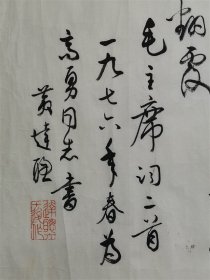 霞
毛主席词二首
一九七六年春为
高勇同志书
黄達聪